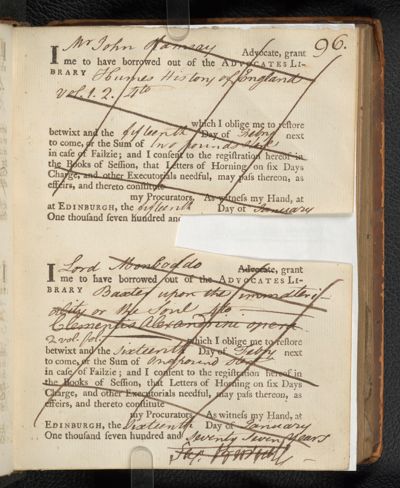 96.
I Mr John Ramsay Advocate, grant
me to have borrowed out of the ADVOCATES LI-
BRARY Humes History of England
Vol. 1. 2. 4to
which I oblige me to restore
betwixt and the fifteenth Day of Febry next
to come, or the Sum of two pounds
in case of Failzie; and I consent to the registration hereof in
the Books of Session, that Letters of Horning on six Days
Charge, and other Executorials needful, may pass thereon, as
effeirs, and thereto constitute
my Procurators. As witness my Hand, at
at EDINBURGH, the fifteenth Day of January
One thousand seven hundred and
I Lord Monboddo Advocate, grant
me to have borrowed out of the ADVOCATES LI-
BRARY Baxter upon the immateri-
ality of the Soul 4to.
Clementis Alexandrini opera
2 vol. fol. which I oblige me to restore
betwixt and the Sixteenth Day of Febry next
to come, or the Sum of one pound
in case of Failzie; and I consent to the registration hereof in
the Books of Session, that Letters of Horning on six Days
Charge, and other Executorials needful, may pass thereon, as
effeirs, and thereto constitute
my Procurators. As witness my Hand, at
EDINBURGH, the Sixteenth Day of January
One thousand seven hundred and Seventy Seven Years